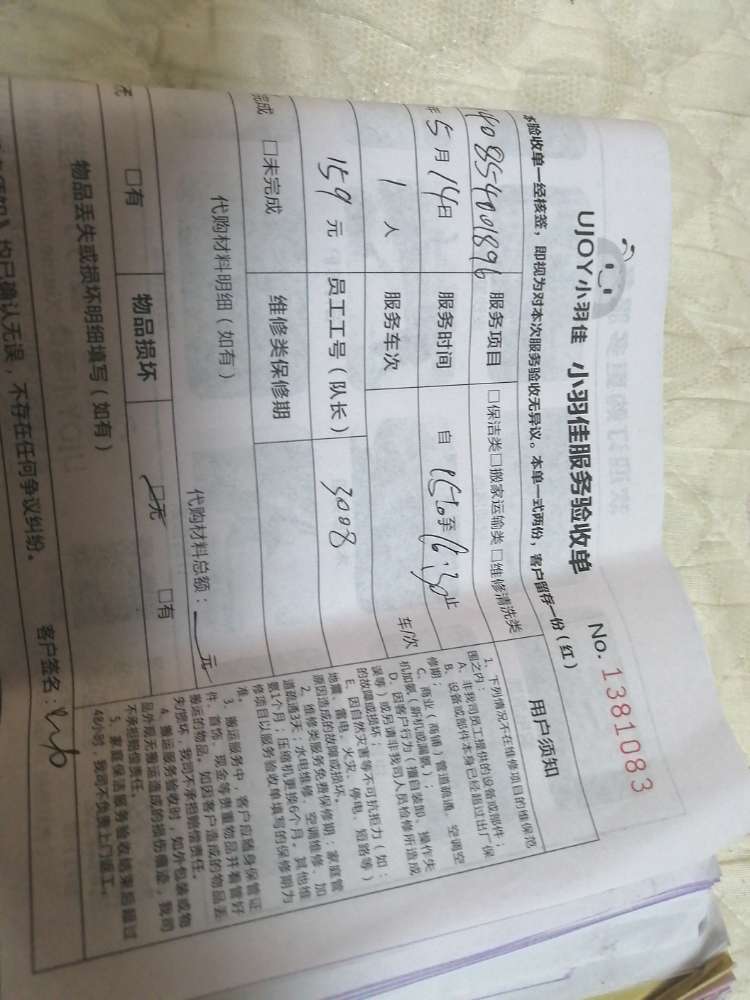 UJOY小羽佳 小羽佳服务验收单
No. 1381083
验收单一经核签，即视为对本次服务验收无异议。本单一式两份，客户留存一份(红)
40854001896
服务项目
□保洁类□搬家运输类□维修清洗类
5月14日
服务时间
自 15:0至16:30止
1 人
服务车次
车/次
159 元
员工工号(队长)
3008
完成 □未完成
维修类保修期
代购材料明细(如有)
代购材料总额：___元
□有
物品损坏
□无 □有
物品丢失或损坏明细填写(如有)
均已确认无误，不存在任何争议纠纷。
客户签名：
用户须知
1、下列情况不在维修项目的维保范
围之内：
A、非我司员工提供的设备或部件；
B、设备或部件本身已经超过出厂保
修期；
C、商业(商铺)管道疏通、空调空
机加氨(新机或漏氨)；
D、因客户行为(擅自装卸、操作失
误等)或另请非我司人员检修所造成
的故障或损坏；
E、因自然灾害等不可抗拒力(如：
地震、雷电、火灾、停电、短路等)
原因造成的故障或损坏。
2、维修类服务免费保修期：家庭管
道疏通3天；水电维修、空调维修、加
氨1个月；压缩机更换6个月。其他维
修项目以服务验收单填写的保修期为
准。
3、搬运服务中，客户应随身保管证
件、首饰、现金等贵重物品并看管好
搬运的物品。如因客户造成的物品丢
失/损坏，我司不承担赔偿责任。
4、搬运服务验收时，如外包装或物
品外观无搬运造成的损伤痕迹，我司
不承担赔偿责任。
5、家庭保洁服务验收结束后超过
48小时，我司不负责上门返工。